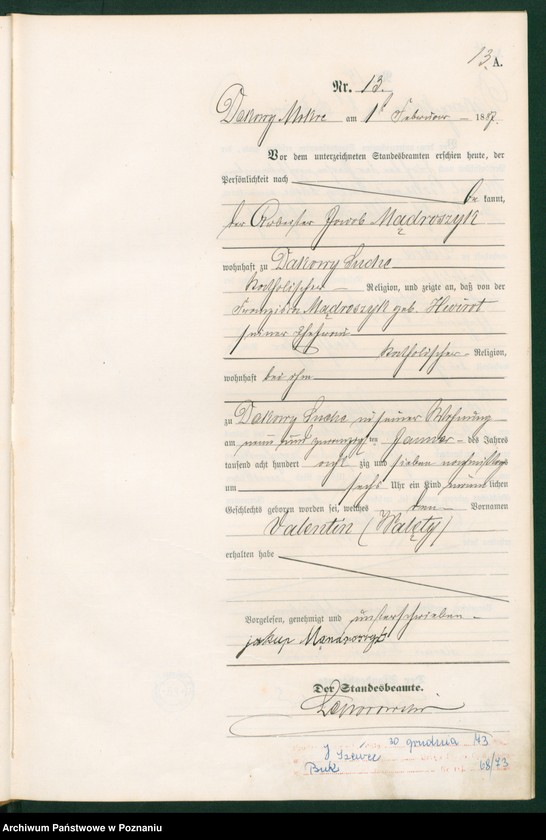 13. A.
Nr. 13.
Dakowy Mokre am 1 Februar 1887.
Vor dem unterzeichneten Standesbeamten erschien heute, der
Persönlichkeit nach
be kannt,
der Arbeiter Jacob Mądroszyk
wohnhaft zu Dakowy Suche
katholischer Religion, und zeigte an, daß von der
Franziska Mądroszyk geb. Hwirot
seiner Ehefrau
katholischer Religion,
wohnhaft bei ihm
zu Dakowy Suche in seiner Wohnung
am neun und zwanzig ten Januar des Jahres
tausend acht hundert acht zig und sieben nachmittags
um sechs Uhr ein Kind männ lichen
Geschlechts geboren worden sei, welches den Vornamen
Valentin (Walęty)
erhalten habe
Vorgelesen, genehmigt und unterschrieben
jakup
Der Standesbeamte.
30 grudnia 43
Buk 68/73
Archiwum Państwowe w Poznaniu